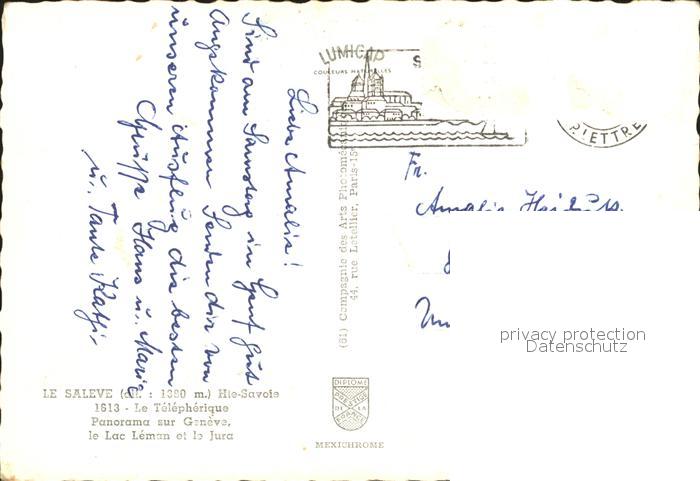 Liebe Amalie!
Sind am Samstag in Genf gut
Angekommen Senden dir von
unseren Ausflug die besten
Grüsse Hans u. Marie
u. Tante Kathi
LUMICAP
COULEURS NATURELLES
S
PIETTRE
Fr.
Amalie
(61) Compagnie des Arts Photomécaniques
44, rue Letellier, Paris-15e
privacy protection
Datenschutz
LE SALEVE (alt. : 1380 m.) Hte-Savoie
1613 - Le Téléphérique
Panorama sur Genève,
le Lac Léman et le Jura
DIPLOME
PRESTIGE
DE LA
FRANCE
MEXICHROME